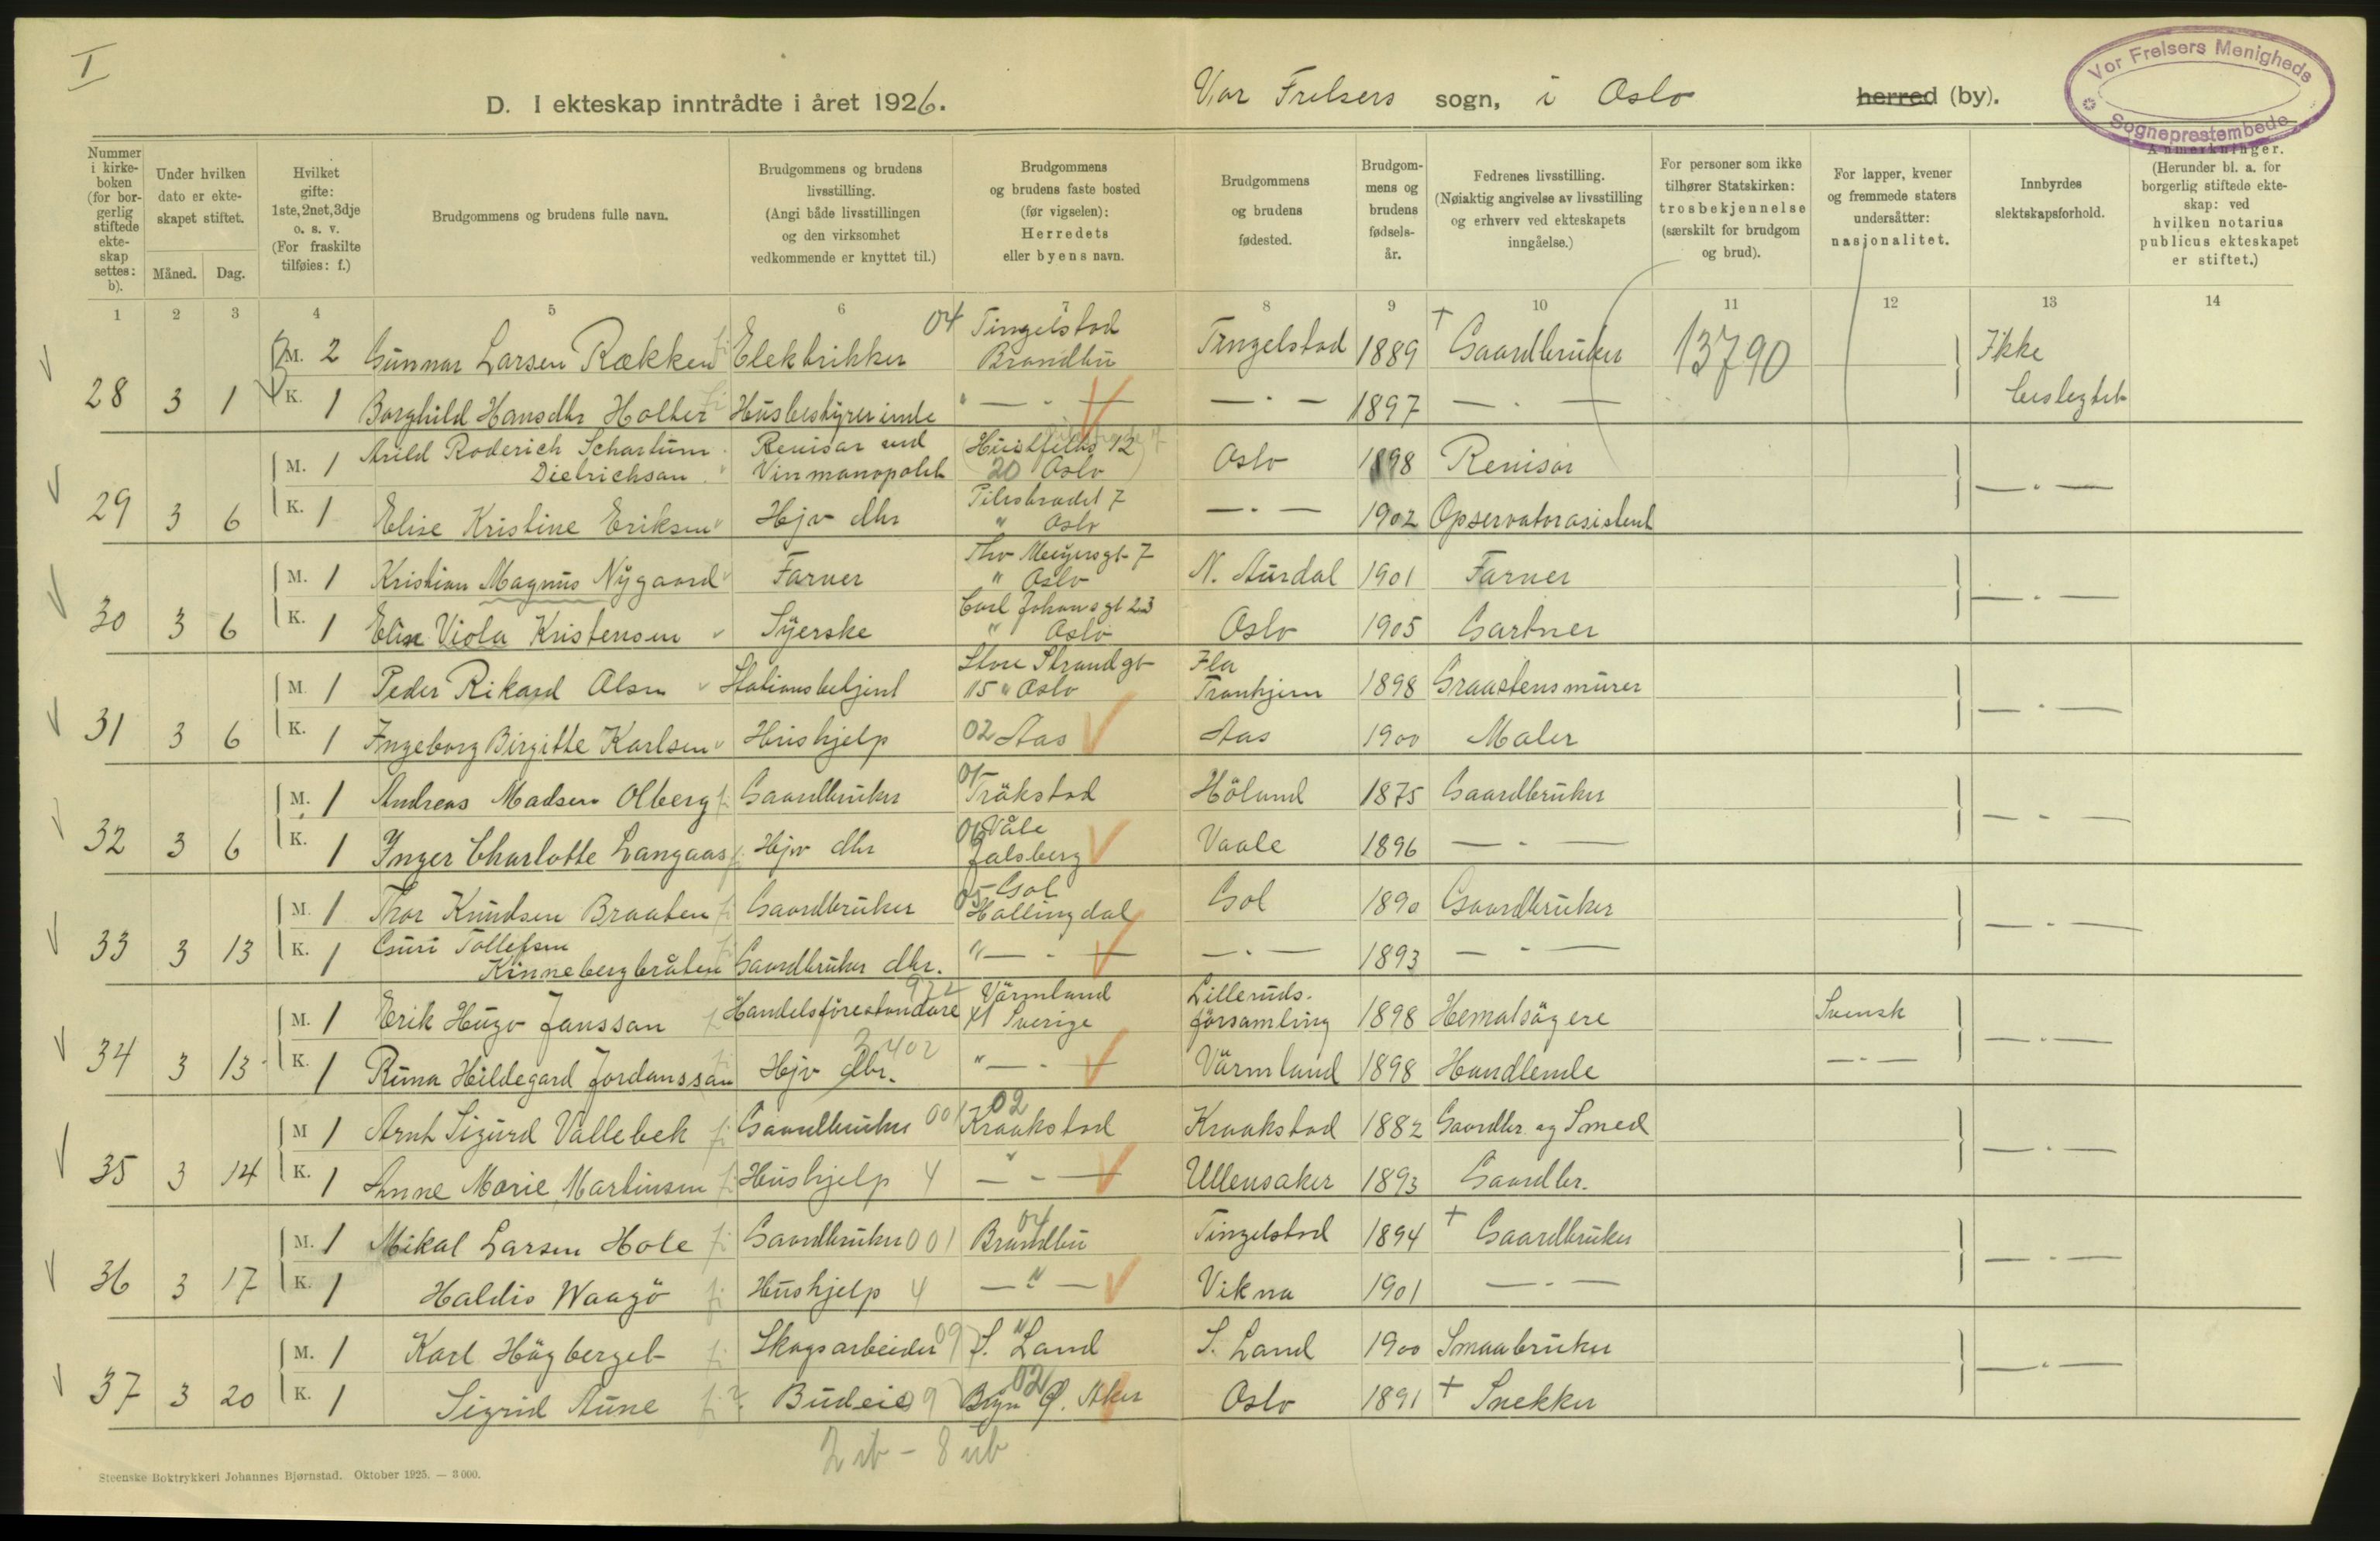 I
D. I ekteskap inntrådte i året 1926.
Var Frelsers sogn, i Oslo herred (by).
Vor Frelsers Menigheds
Sogneprestembede
Nummer i kirkeboken (for borgerlig stiftede ekteskap settes: b).
Under hvilken dato er ekteskapet stiftet.
Måned. Dag.
Hvilket gifte: 1ste, 2net, 3dje o. s. v. (For fraskilte tilføies: f.)
Brudgommens og brudens fulle navn.
Brudgommens og brudens livsstilling. (Angi både livsstillingen og den virksomhet vedkommende er knyttet til.)
Brudgommens og brudens faste bosted (før vigselen): Herredets eller byens navn.
Brudgommens og brudens fødested.
Brudgommens og brudens fødselsår.
Fedrenes livsstilling. (Nøiaktig angivelse av livsstilling og erhverv ved ekteskapets inngåelse.)
For personer som ikke tilhører Statskirken: trosbekjennelse (særskilt for brudgom og brud).
For lapper, kvener og fremmede staters undersåtter: nasjonalitet.
Innbyrdes slektskapsforhold.
Anmerkninger. (Herunder bl. a. for borgerlig stiftede ekteskap: ved hvilken notarius publicus ekteskapet er stiftet.)
1 2 3 4 5 6 7 8 9 10 11 12 13 14
28 3 1 M. 2 Gunnar Larsen Rækken Elektrikker 04 Tingelstad Brandbu Tingelstad 1889 + Gaardbruker 13790 Ikke beslegtet
K. 1 Borghild Hansdtr Holter Husbestyrerinde " — " — — " — 1897 — " —
29 3 6 M. 1 Arild Roderich Schartum Dietrichson Revisor ved Vinmonopolet Huitfelts 12 20 Oslo Oslo 1898 Revisor — " —
K. 1 Elise Kristine Eriksen Hjv dtr Pilestrædet 7 " Oslo — " — 1902 Opservatorasistent
30 3 6 M. 1 Kristian Magnus Nygaard Farver Thv Meyersgt 7 " Oslo N. Aurdal 1901 Farver — " —
K. 1 Elise Viola Kristensen Syerske Carl Johansgt 23 " Oslo Oslo 1905 Gartner
31 3 6 M. 1 Peder Rikard Olsen Stationsbetjent Store Strandgt 15 " Oslo Fla Tronhjem 1898 Graastensmurer — " —
K. 1 Ingeborg Birgitte Karlsen Hushjelp 02 Aas Aas 1900 Maler
32 3 6 M. 1 Andreas Madsen Olberg Gaardbruker 01 Träkstad Höland 1875 Gaardbruker — " —
K. 1 Inger Charlotte Langaas Hjv dtr Våle Jalsberg Vaale 1896 — " —
33 3 13 M. 1 Thor Knudsen Braaten Gaardbruker 05 Gol Hallingdal Gol 1890 Gaardbruker — " —
K. 1 Guri Tollefsen Kinnebergbråten Gaardbruker dtr. " — " — — " — 1893 — " —
34 3 13 M. 1 Erik Hugo Janssan Handelsföreståndare Värmland Sverige Lilleruds församling 1898 Hematsägere Svensk — " —
K. 1 Runa Hildegard Jordanssan Hjv dtr. " — " — Värmland 1898 Handlende — " —
35 3 14 M 1 Arnt Sigurd Vallebek Gaardbruker 001 02 Kraakstad Kraakstad 1882 Gaardbr. og Smed — " —
K. 1 Anne Marie Martinsen Hushjelp 4 — " — Ullensaker 1893 Gaardbr.
36 3 17 M. 1 Mikal Larsen Hole Gaardbruker 001 04 Brandbu Tingelstad 1894 + Gaardbruker — " —
K. 1 Haldis Waagö Hushjelp 4 — " — Vikna 1901 — " —
37 3 20 M. 1 Karl Högberget Skogsarbeider 09 S. Land S. Land 1900 Smaabruker — " —
K. 1 Sigrid Aune Budeie 09 02 Bryn Ø. Aker Oslo 1891 + Snekker
2 ib - 8 ub
Steenske Boktrykkeri Johannes Bjørnstad. Oktober 1925. — 3000.